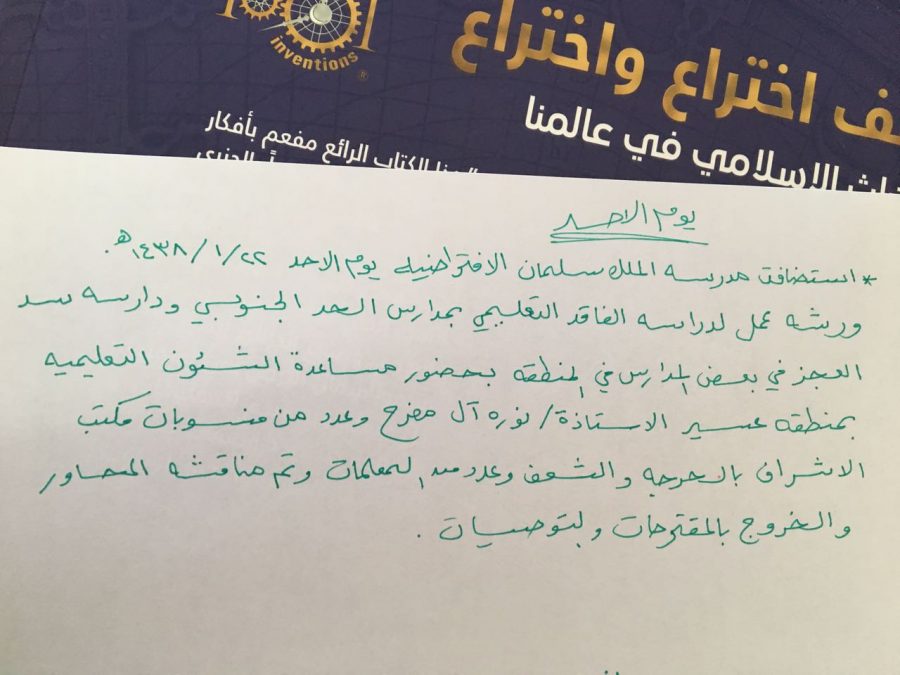 inventions
ف اختراع واختراع
الإسلامي في عالمنا
الكتاب الرائع مفعم بأفكار
يوم الاحد
* استضافت مدرسه الملك سلمان الافتراضيه يوم الاحد ٢٢/ ١/ ١٤٣٨هـ.
ورشه عمل لدراسه الفاقد التعليمي بمدارس الحد الجنوبي ودارسه سد
العجز في بعض المدارس في المنطقه بحضور مساعدة الشئون التعليميه
بمنطقه عسير الاستاذة/ نوره آل مفرح وعدد من منسوبات مكتب
الاشراف بالحرجه والشعف وعدد من المعلمات وتم مناقشه المحاور
والخروج بالمقترحات والتوصيات .